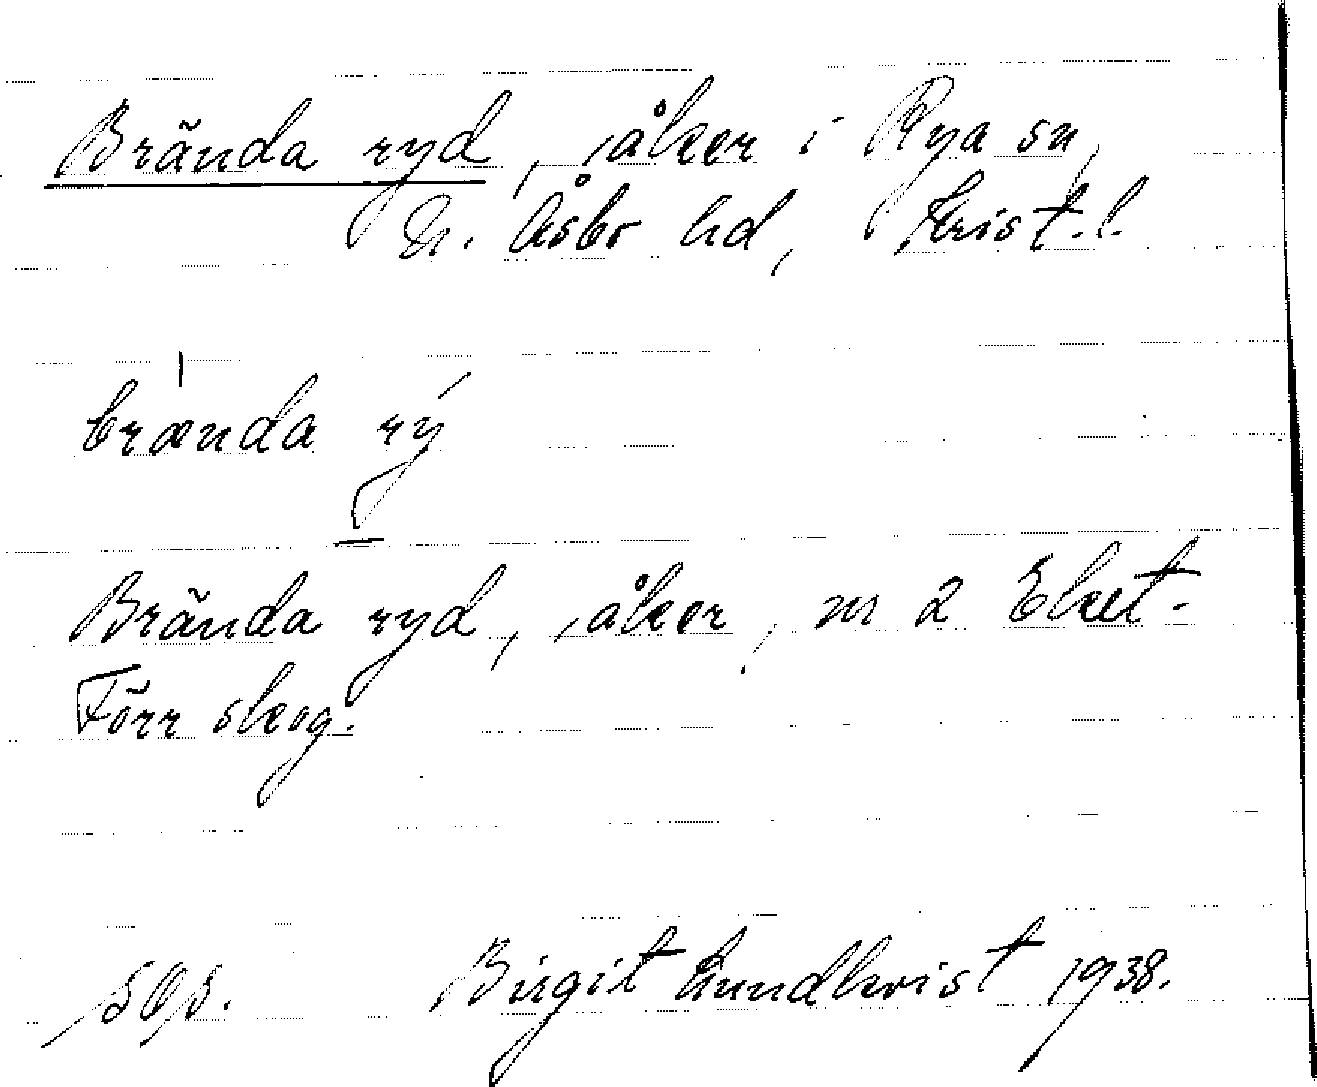 Brända ryd, åker i Rya sn,
N. Åsbo hd, Krist. l.
brænda rý
Brända ryd, åker, nr 2 Eket.
Förr skog.
Birgit Lundkvist 1938.